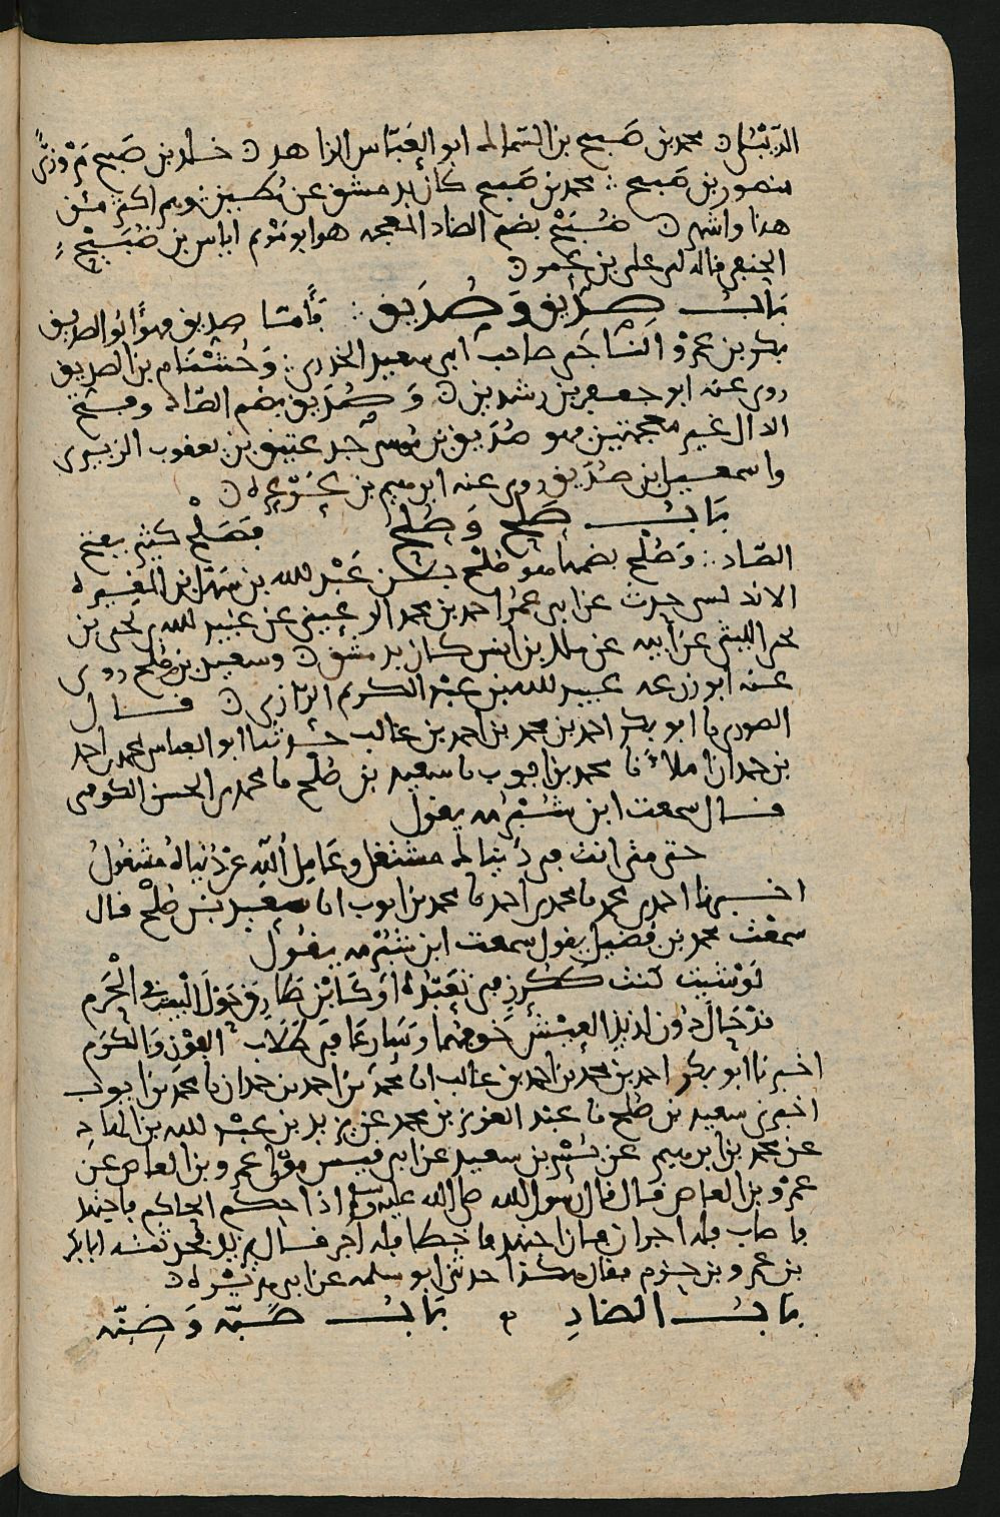 محمد بن صبيح بن السماك ابو العباس الزاهد ۝ خالد بن صبيح مروزي
منصور بن صبيح ∴ محمد بن صبيح كان بدمشق وهم اكثر من
هذا واشهر ۝ ضُبَيْح بضم الضاد المعجمة هو ابو مريم اياس بن ضُبَيْح
الحنفي قاله لي علي بن عمر ۝
بَابُ صِدِّيق وَصُدَيق ∴ فأمّا صديق فهو ابو الصديق
بكر بن عمرو الناجي صاحب ابي سعيد الخدري ∴ وخُشْنَام بن الصديق
روى عنه ابو جعفر بن رشدين ۝ وَصُدَيق بضم الصّاد وفتح
الدال غير معجمتين فهو صُدَيق بن موسى جد عتيق بن يعقوب الزبيري
واسمعيل بن صُدَيق روى عنه ابرهيم بن عَرْعَرة ۝
بَابُ صَلْح وَطُلْح فصَلْح كثير بفتح
الصّاد ∴ وَصُلْح بضمها هو صُلْح بن عَبْد الله بن سهل بن المغيرة
الاندلسي حدث عن ابي عمر احمد بن محمد الرعيني عن عبيد الله بن يحيى بن
يحيى الليثي عن أبيه عن ملك بن أنس كان بدمشق ۝ وسعيد بن صُلْح روى
عنه ابو زرعه عبيد الله بن عبد الكريم الرازي ۝ قال
الصوري نا ابو بكر احمد بن محمد بن احمد بن غالب حدثنا ابو العباس محمد بن احمد
بن حمدان املاءً نا محمد بن ايوب نا سعيد بن صُلْح نا محمد بن الحسن الكوفي
قال سمعت ابن شُبْرُمه يقول
حتى متى انت في دُنياك مشتغل وعَامِلُ اللهِ عن دُنياهُ مشغُولُ
اخبرنا احمد بن محمد نا محمد بن احمد نا محمد بن ايوب انا سعيد بن صُلْح قال
سمعت محمد بن فضيل يقول سمعت ابن شبرمه يقول
لَوْ شئت كنت ككُرْزٍ في تعَبّدِهِ أوْ كَابْنِ طَارِقٍ حَوْلَ البيت في الْحَرمِ
قَدْ حَالَ دُونَ لذيذِ العيْشِ خَوفُهُما وَسَارعَا في طِلَابِ الفوزِ وَالْكَرَمِ
اخبرنا أبو بكر احمد بن محمد بن احمد بن غالب انا محمد بن احمد بن حمدان نا محمد بن ايوب
اخبرني سعيد بن صُلح نا عبد العزيز بن محمد عن يزيد بن عبد الله بن الهادِ
عن محمد بن ابرهيم عن بُسْر بن سعيد عن ابي قيس مولى عمرو بن العاص عن
عمرو بن العاص قال قال رسول الله صلى الله عليه وسلم اذا حكم الحاكم فاجتهد
فاصاب فله اجران فان اجتهد فاخطا فله أجر قال يزيد فحدثته ابا بكر
بن عمرو بن حزم فقال هكذا حدثني ابو سلمه عن ابي هريْرة ۝
بابُ الضادِ بَابُ ضَبّه وَضِنّه